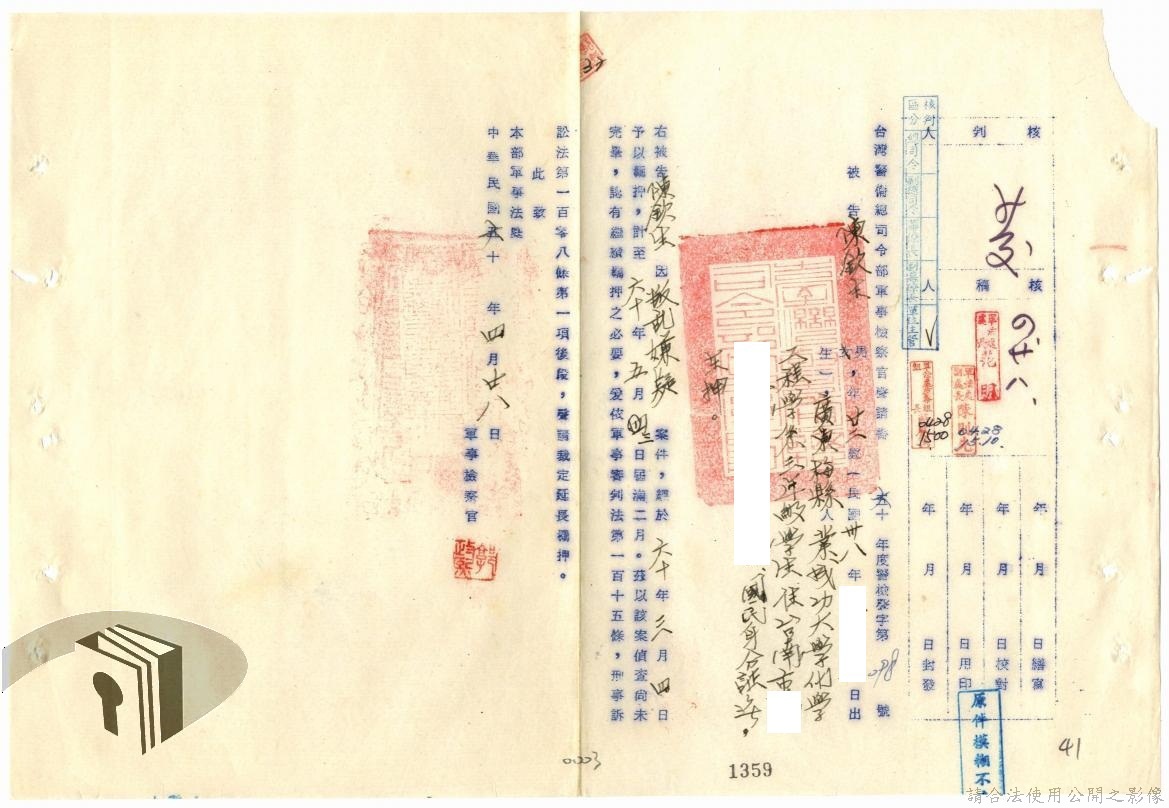 核判
核稿
年 月 日繕寫
年 月 日校對
年 月 日用印
年 月 日封發
核判區分
人
人
0428
1500
04.28
15.10.
台灣警備總司令部軍事檢察官聲請書 六十年度警檢發字第 098 號
被告 陳欽生
男,年廿二歲(民國卅八年 日出
生),廣東梅縣人,業成功大學化學
工程學系三年級學生住台南市
國民身分證
在押。
右被告陳欽生因叛亂嫌疑案件,經於六十年三月四日
予以羈押,計至六十年五月 日屆滿二月。茲以該案偵查尚未
完畢,認有繼續羈押之必要,爰依軍事審判法第一百十五條,刑事訴
訟法第一百零八條第一項後段,聲請裁定延長羈押。
此致
本部軍事法庭
軍事檢察官
中華民國六十年四月廿八日
原件模糊不
41
1359
0003
請合法使用公開之影像